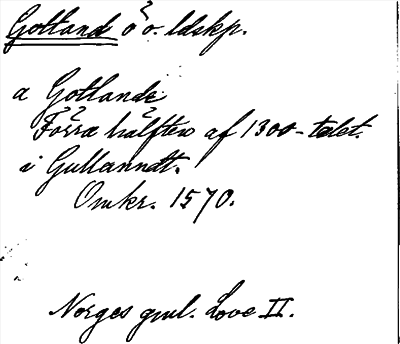 Gotland ö o. ldskp.
a Gotlandi
Förra hälften af 1300-talet.
i Gullanndt.
Omkr. 1570.
Norges gml. Love II.